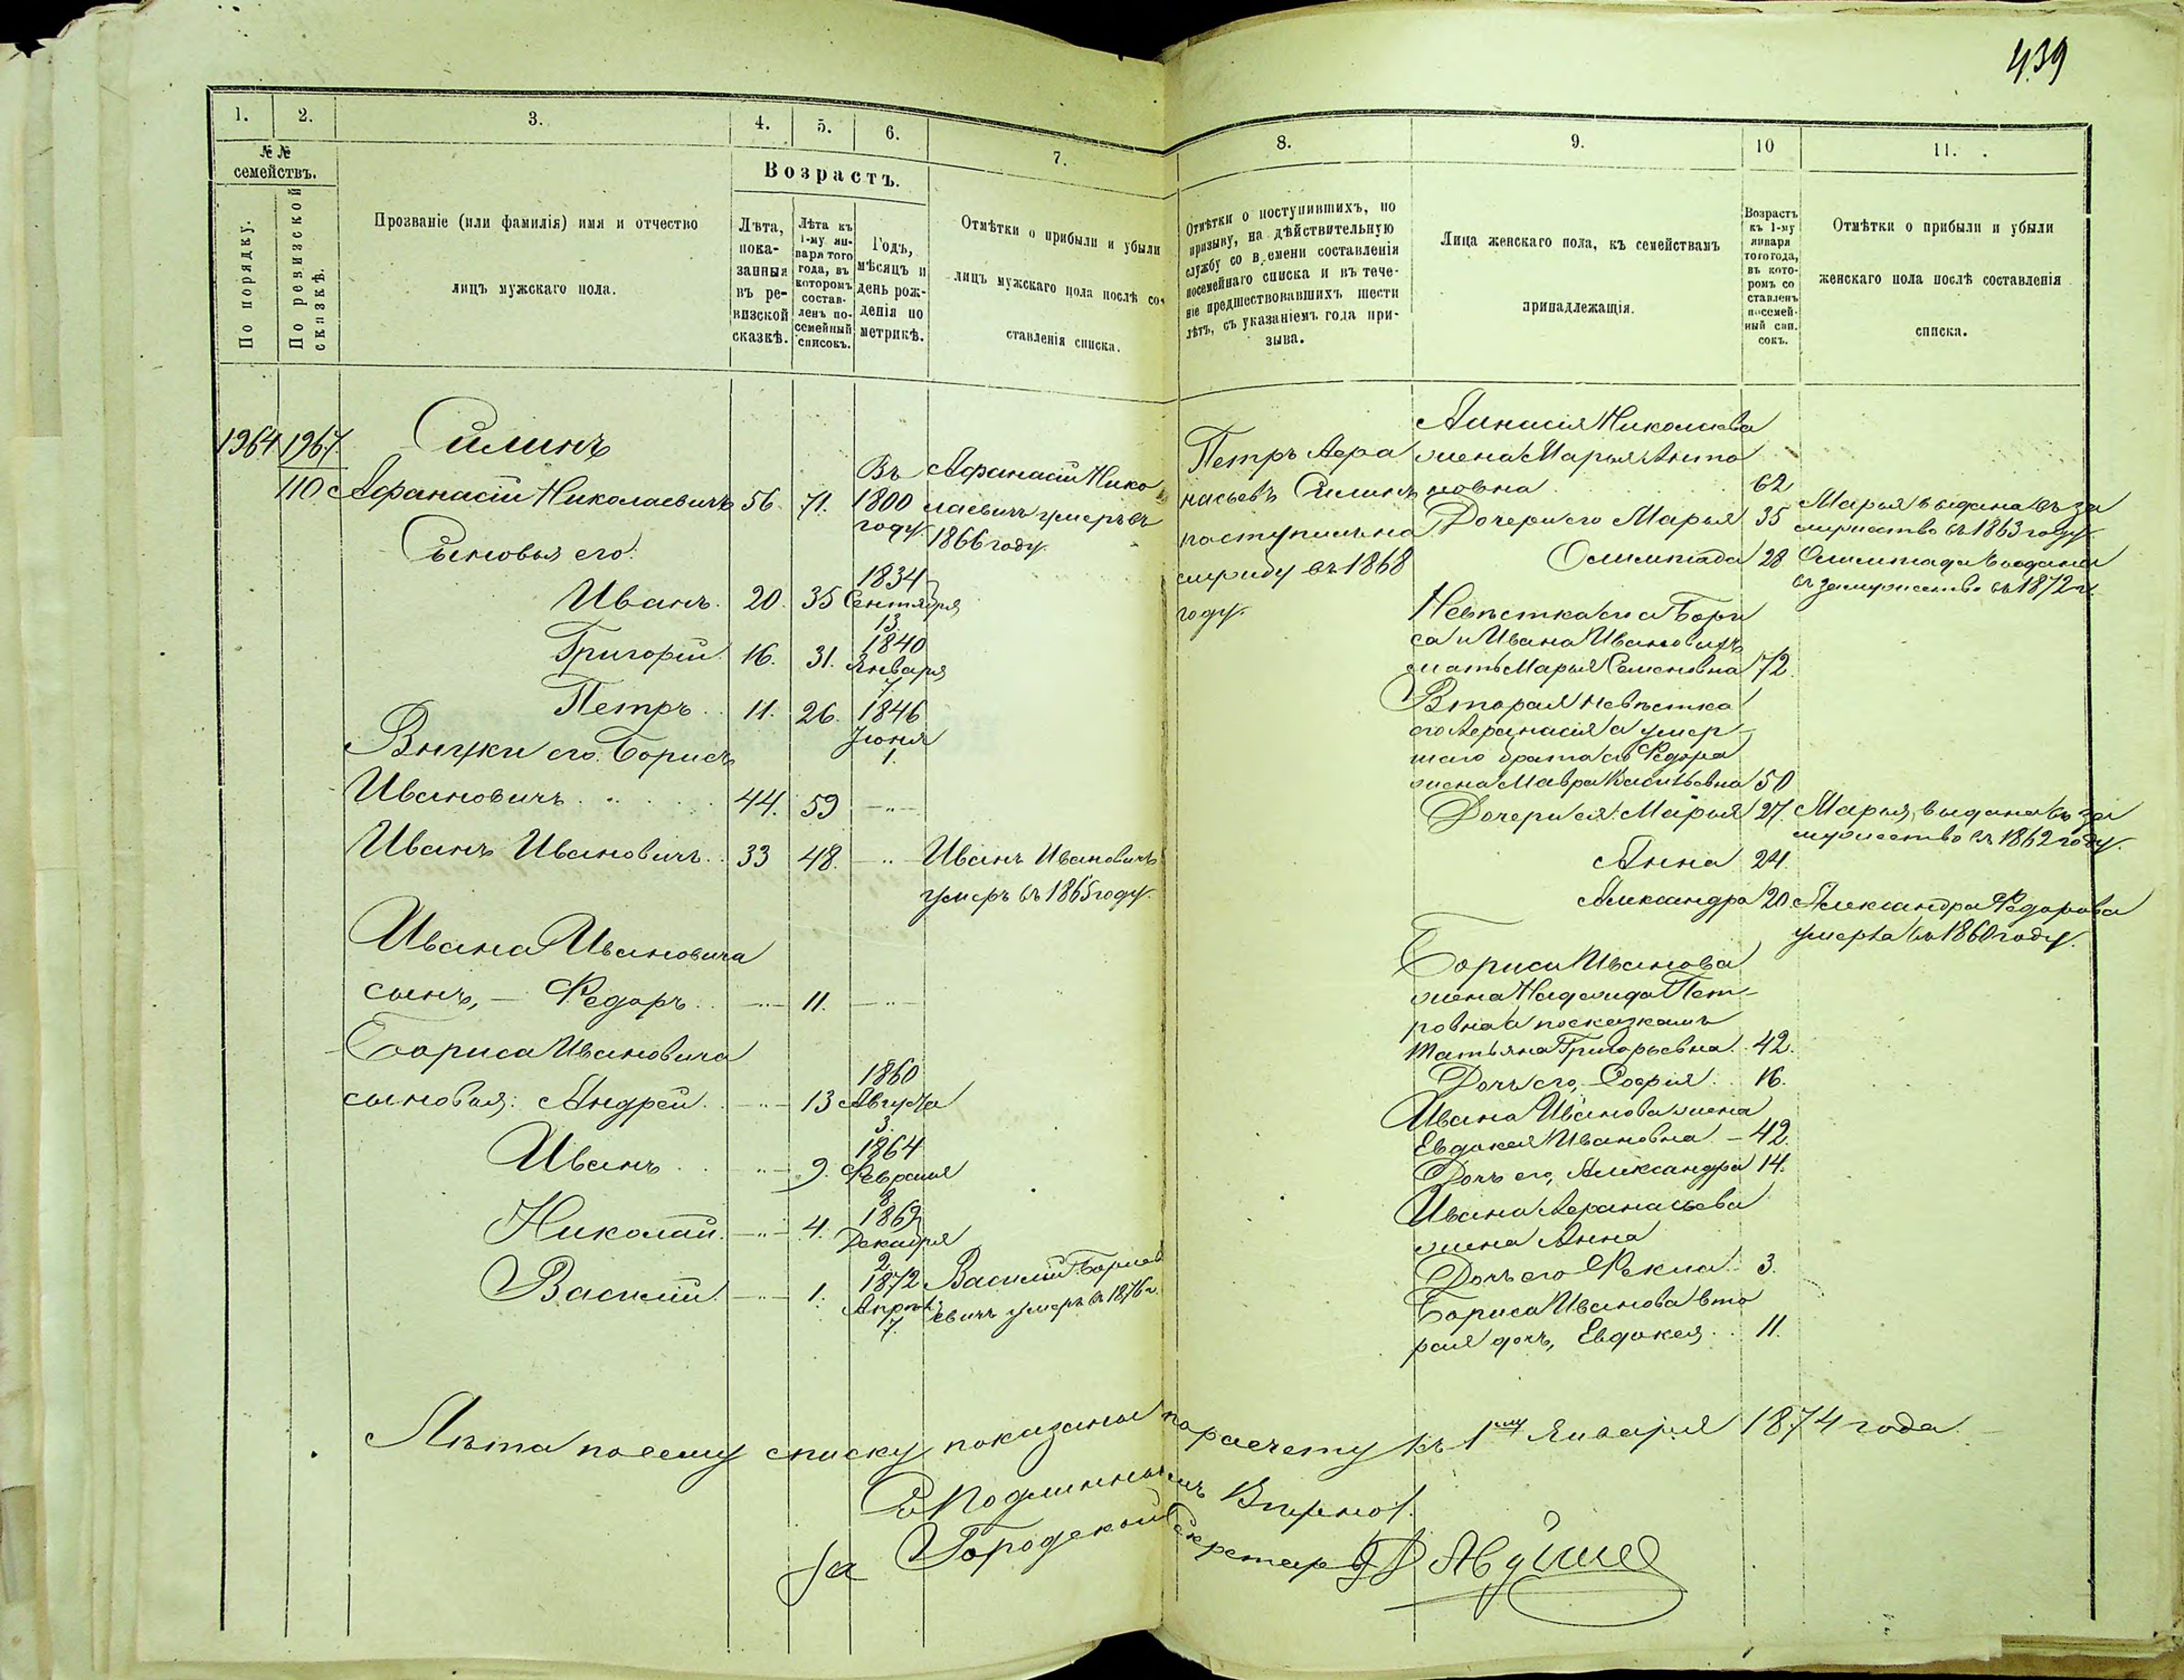 439
1.
2.
3.
4.
5.
6.
7.
8.
9.
10
11.
№ №
семействъ.
По порядку.
По ревизской
сказкѣ.
Прозваніе (или фамилія) имя и отчество
лицъ мужскаго пола.
Возрастъ.
Лѣта,
пока-
занныя
въ ре-
визской
сказкѣ.
Лѣта къ
1-му ян-
варя того
года, въ
которомъ
состав-
ленъ по-
семейный
списокъ.
Годъ,
мѣсяцъ и
день рож-
денія по
метрикѣ.
Отмѣтки о прибыли и убыли
лицъ мужскаго пола послѣ со-
ставленія списка.
Отмѣтки о поступившихъ, по
призыву, на дѣйствительную
службу со времени составленія
посемейнаго списка и въ тече-
ніе предшествовавшихъ шести
лѣтъ, съ указаніемъ года при-
зыва.
Лица женскаго пола, къ семействамъ
принадлежащія.
Возрастъ
къ 1-му
января
того года,
въ кото-
ромъ со
ставленъ
посемей-
ный спи.
сокъ.
Отмѣтки о прибыли и убыли
женскаго пола послѣ составленія
списка.
1964 1967
110
Силинъ
Афанасій Николаевичъ 56. 71.
Въ
1800
году.
Афанасій Нико
лаевичъ умеръ въ
1866 году.
Сыновья его:
Иванъ. 20. 35
1834
Сентября
13.
Григорій. 16. 31.
1840
Января
7
Петръ. 11. 26.
1846
Іюня
1.
Внуки его: Борисъ
Ивановичъ. 44. 59 —"—
Иванъ Ивановичъ. 33 48. —"—
Иванъ Ивановичъ
умеръ въ 1865 году.
Ивана Ивановича
сынъ, — Федоръ. —"— 11. —"—
Бориса Ивановича
сыновья: Андрей. —"— 13
1860
Августа
3.
Иванъ. —"— 9.
1864
Февраля
8.
Николай. —"— 4.
1869
Декабря
2
Василій. —"— 1.
1872
Апрѣл.
7.
Василій Борисо
евичъ умеръ въ 1876 г.
Петръ Афа
насьевъ Силинъ
поступилъ на
службу въ 1868
году.
Афанасія Николаева
жена Марья Анто
новна. 62
Дочери его Марья 35
Марья выдана въ за
мужество въ 1863 году.
Олимпіада 28
Олимпіада выдана
въ замужество въ 1872 г.
Невѣстка его а Бори
са и Ивана Ивановыхъ
мать Марья Семеновна 72.
Вторая невѣстка
его Афанасія а умер-
шаго брата его Федора
жена Мавра Васильевна 50
Дочери ея: Марья 27.
Марья, выдана въ за
мужество въ 1862 году.
Анна 24.
Александра 20.
Александра Федорова
умерла въ 1860 году.
Бориса Иванова
жена Надежда Пет-
ровна а по сказкамъ
Татьяна Григорьевна. 42.
Дочь его, Софія. 16.
Ивана Иванова жена
Евдокея Ивановна — 42.
Дочь его, Александра 14.
Ивана Афанасьева
жена Анна
Дочь его Фекла. 3.
Бориса Иванова вто
рая дочь, Евдокея. 11.
Лѣта по сему списку показаны по расчету къ 1му Января 1874 года.
Съ подлиннымъ Вѣрно:
За Городской Секретарь